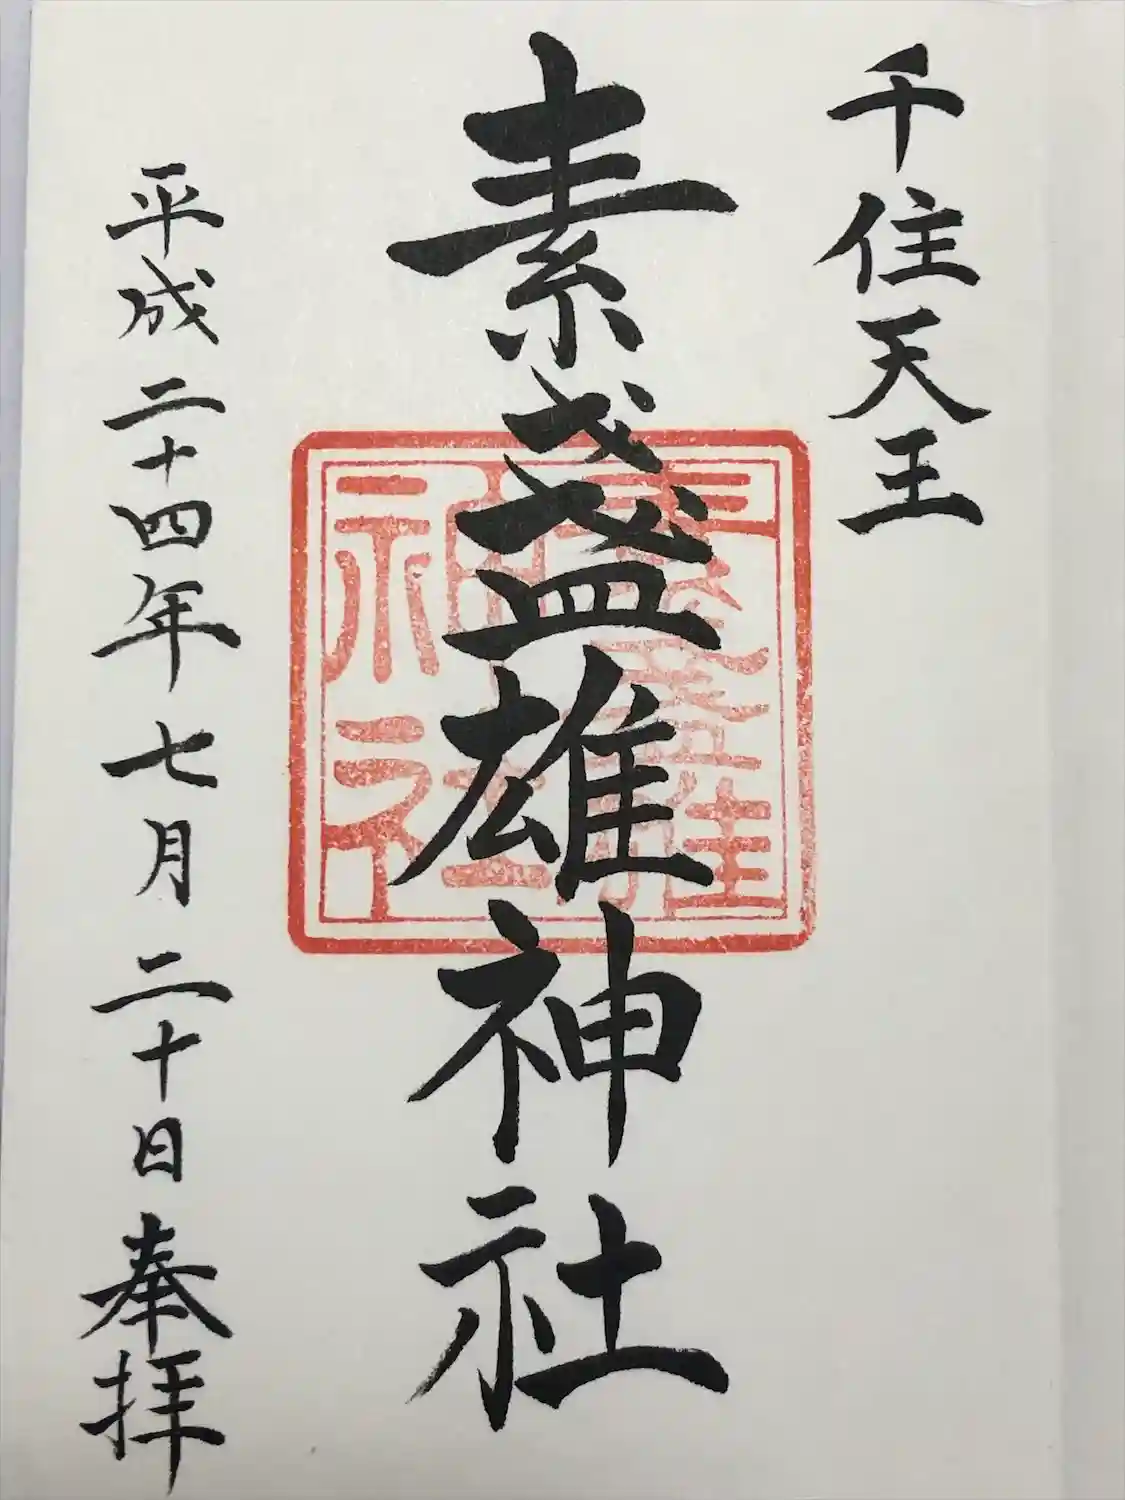 千住天王
素盞雄神社
素盞雄
神社
平成二十四年七月二十日奉拝